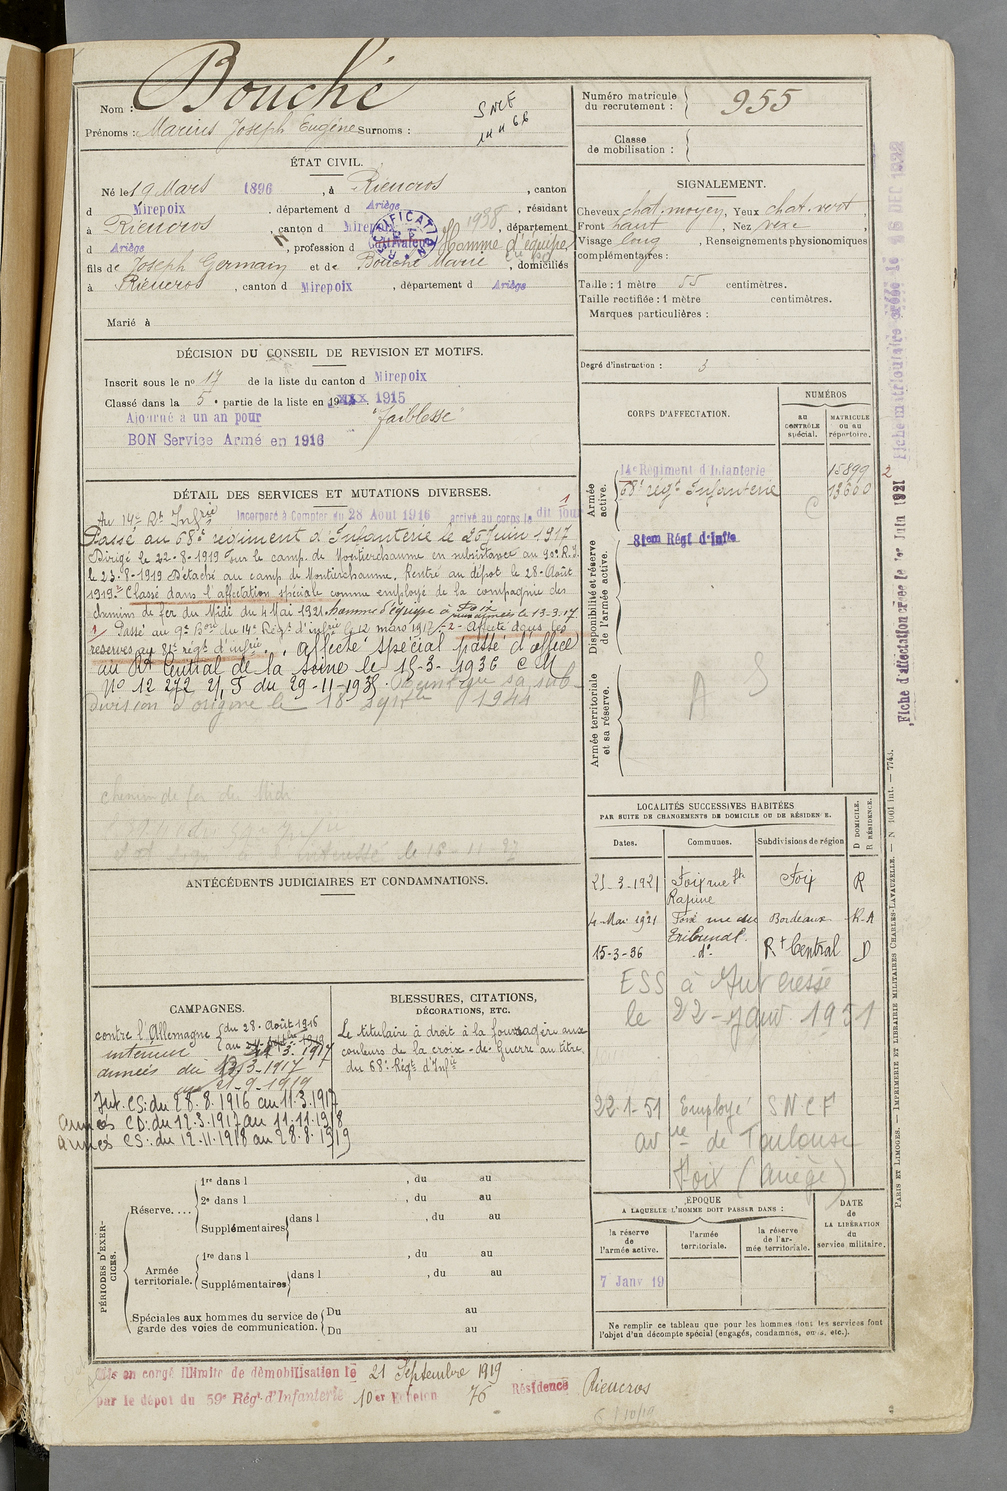 Nom : Bouché
Prénoms : Marius Joseph Eugène Surnoms :
SNCF
ÉTAT CIVIL.
Né le 19 Mars 1896, à Rieucros, canton
d Mirepoix, département d Ariège, résidant
à Rieucros, canton d Mirepoix, département
d Ariège, profession d Cultivateur Homme d'équipe 1938
RECTIFICATION DIVERSES
fils de Joseph Germain et de Bouché Marie, domiciliés
à Rieucros, canton d Mirepoix, département d Ariège
Marié à
DÉCISION DU CONSEIL DE REVISION ET MOTIFS.
Inscrit sous le no 17 de la liste du canton d Mirepoix
Classé dans la 5e partie de la liste en 1915
Ajourné a un an pour "faiblesse"
BON Service Armé en 1916
DÉTAIL DES SERVICES ET MUTATIONS DIVERSES.
Au 14e Rt Infrie Incorporé à Compter du 28 Aout 1916 arrivé au corps le dit jour 1
Passé au 68e régiment d'Infanterie le 25 Juin 1917
Dirigé le 22-8-1919 sur le camp de Montierchaume en subsistance au 90e R.I.
le 23-8-1919 Détaché au camp de Montierchaume. Rentré au dépôt le 28-Août
1919. Classé dans l'affectation spéciale comme employé de la compagnie des
chemins de fer du Midi du 4 Mai 1921 homme d'équipe à Foix
1/ Passé au 9e Bon du 14e Régt d'infrie le 12 mars 1917 -2- Affecté dans les
réserves au 81e régt d'infrie, affecté spécial passé d'office
au Rt Central de la Seine le 15-3-1936 C M
No 12 272 2/1 T du 29-11-1935. Réintègre sa sub-
division d'origine le 18 Septbre 1944
chemin de fer du Midi
intéressé le 18-11-27
ANTÉCÉDENTS JUDICIAIRES ET CONDAMNATIONS.
CAMPAGNES.
contre l'Allemagne du 28 Août 1916
intérieur au 11.3.1917
armées du 12.3.1917
au 21-9-1919
Int. CS: du 28.8.1916 au 11.3.1917
armées CD: du 12.3.1917 au 11.11.1918
armées CS: du 12.11.1918 au 28.8.1919
BLESSURES, CITATIONS,
DÉCORATIONS, ETC.
Le titulaire à droit à la fourragère aux
couleurs de la croix-de-Guerre au titre
du 68e Régt d'Infie
PÉRIODES D'EXERCICES.
Réserve....
1re dans l , du au
2e dans l , du au
Supplémentaires dans l , du au
Armée territoriale.
1re dans l , du au
Supplémentaires dans l , du au
Spéciales aux hommes du service de garde des voies de communication.
Du au
Du au
Mis en congé illimité de démobilisation le 21 Septembre 1919
par le dépôt du 59e Régt d'Infanterie 10er Echelon 76 Résidence Rieucros
Numéro matricule du recrutement : 955
Classe de mobilisation :
SIGNALEMENT.
Cheveux chat. moyen, Yeux chat. vert
Front haut, Nez vexe,
Visage long, Renseignements physionomiques
complémentaires :
Taille : 1 mètre 55 centimètres.
Taille rectifiée : 1 mètre centimètres.
Marques particulières :
Degré d'instruction : 3
CORPS D'AFFECTATION.
NUMÉROS
au CONTRÔLE spécial.
MATRICULE ou au répertoire.
Armée active.
14e Régiment d'Infanterie 15899 2
68e régt Infanterie 13600
Disponibilité et réserve de l'armée active.
81em Régt d'Infie
Armée territoriale et sa réserve.
A S
LOCALITÉS SUCCESSIVES HABITÉES
PAR SUITE DE CHANGEMENTS DE DOMICILE OU DE RÉSIDENCE.
Dates. Communes. Subdivisions de région D DOMICILE. R RÉSIDENCE.
21-3-1921 Foix rue Rapine Foix R
4-Mai 1921 Foix rue du Tribunal. Bordeaux R.A
15-3-36 do Rt Central D
ESS à Intéressé
le 22-janv 1951
22-1-51 Employé SNCF
av re de Toulouse
Foix (Ariège)
ÉPOQUE
A LAQUELLE L'HOMME DOIT PASSER DANS :
la réserve de l'armée active.
l'armée territoriale.
la réserve de l'armée territoriale.
DATE de LA LIBÉRATION du service militaire.
7 Janv 19
Ne remplir ce tableau que pour les hommes dont les services font
l'objet d'un décompte spécial (engagés, condamnés, omis, etc.).
Fiche d'affectation créée le 1er Juin 1921
Fiche matriculaire créée le 15 DEC 1932
PARIS ET LIMOGES. — IMPRIMERIE ET LIBRAIRIE MILITAIRES CHARLES-LAVAUZELLE. — N 1001 int. — 7743.